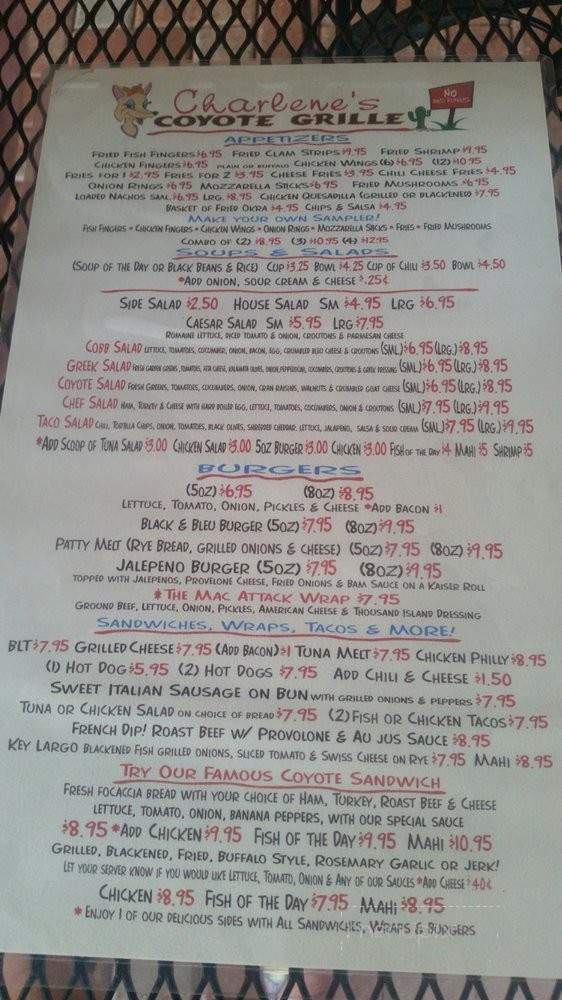 Charlene's
COYOTE GRILLE
NO
APPETIZERS
FRIED FISH FINGERS $6.95 FRIED CLAM STRIPS $9.95 FRIED SHRIMP $9.95
CHICKEN FINGERS $6.95 PLAIN OR BUFFALO CHICKEN WINGS (6) $6.95 (12) $10.95
FRIES FOR 1 $2.95 FRIES FOR 2 $3.95 CHEESE FRIES $3.95 CHILI CHEESE FRIES $4.95
ONION RINGS $6.95 MOZZARELLA STICKS $6.95 FRIED MUSHROOMS $6.95
LOADED NACHOS SML $6.95 LRG $8.95 CHICKEN QUESADILLA (GRILLED OR BLACKENED) $7.95
BASKET OF FRIED OKRA $4.95 CHIPS & SALSA $4.95
MAKE YOUR OWN SAMPLER!
FISH FINGERS • CHICKEN FINGERS • CHICKEN WINGS • ONION RINGS • MOZZARELLA STICKS • FRIES • FRIED MUSHROOMS
COMBO OF (2) $8.95 (3) $10.95 (4) $12.95
SOUPS & SALADS
(SOUP OF THE DAY OR BLACK BEANS & RICE) CUP $3.25 BOWL $4.25 CUP OF CHILI $3.50 BOWL $4.50
*ADD ONION, SOUR CREAM & CHEESE $.25¢
SIDE SALAD $2.50 HOUSE SALAD SM $4.95 LRG $6.95
CAESAR SALAD SM $5.95 LRG $7.95
ROMAINE LETTUCE, DICED TOMATO & ONION, CROUTONS & PARMESAN CHEESE
COBB SALAD LETTUCE, TOMATOES, CUCUMBER, ONION, BACON, EGG, CRUMBLED BLEU CHEESE & CROUTONS (SML) $6.95 (LRG.) $8.95
GREEK SALAD FRESH GARDEN GREENS, TOMATOES, FETA CHEESE, KALAMATA OLIVES, ONION, PEPPERONCINI, CUCUMBERS, CROUTONS & GREEK DRESSING (SML) $6.95 (LRG.) $8.95
COYOTE SALAD FRESH GREENS, TOMATOES, CUCUMBERS, ONION, CRAN RAISINS, WALNUTS & CRUMBLED GOAT CHEESE (SML) $6.95 (LRG.) $8.95
CHEF SALAD HAM, TURKEY & CHEESE WITH HARD BOILED EGG, LETTUCE, TOMATOES, CUCUMBERS, ONION & CROUTONS (SML) $7.95 (LRG.) $9.95
TACO SALAD CHILI, TORTILLA CHIPS, ONION, TOMATOES, BLACK OLIVES, SHREDDED CHEDDAR, LETTUCE, JALAPENO, SALSA & SOUR CREAM (SML) $7.95 (LRG.) $9.95
*ADD SCOOP OF TUNA SALAD $3.00 CHICKEN SALAD $3.00 5OZ BURGER $3.00 CHICKEN $3.00 FISH OF THE DAY $4 MAHI $5 SHRIMP $5
BURGERS
(5OZ) $6.95 (8OZ) $8.95
LETTUCE, TOMATO, ONION, PICKLES & CHEESE *ADD BACON $1
BLACK & BLEU BURGER (5OZ) $7.95 (8OZ) $9.95
PATTY MELT (RYE BREAD, GRILLED ONIONS & CHEESE) (5OZ) $7.95 (8OZ) $9.95
JALEPENO BURGER (5OZ) $7.95 (8OZ) $9.95
TOPPED WITH JALEPENOS, PROVELONE CHEESE, FRIED ONIONS & BAM SAUCE ON A KAISER ROLL
* THE MAC ATTACK WRAP $7.95
GROUND BEEF, LETTUCE, ONION, PICKLES, AMERICAN CHEESE & THOUSAND ISLAND DRESSING
SANDWICHES, WRAPS, TACOS & MORE!
BLT $7.95 GRILLED CHEESE $7.95 (ADD BACON) $1 TUNA MELT $7.95 CHICKEN PHILLY $8.95
(1) HOT DOG $5.95 (2) HOT DOGS $7.95 ADD CHILI & CHEESE $1.50
SWEET ITALIAN SAUSAGE ON BUN WITH GRILLED ONIONS & PEPPERS $7.95
TUNA OR CHICKEN SALAD ON CHOICE OF BREAD $7.95 (2) FISH OR CHICKEN TACOS $7.95
FRENCH DIP! ROAST BEEF W/ PROVOLONE & AU JUS SAUCE $8.95
KEY LARGO BLACKENED FISH GRILLED ONIONS, SLICED TOMATO & SWISS CHEESE ON RYE $7.95 MAHI $8.95
TRY OUR FAMOUS COYOTE SANDWICH
FRESH FOCACCIA BREAD WITH YOUR CHOICE OF HAM, TURKEY, ROAST BEEF & CHEESE
LETTUCE, TOMATO, ONION, BANANA PEPPERS, WITH OUR SPECIAL SAUCE
$8.95 *ADD CHICKEN $9.95 FISH OF THE DAY $9.95 MAHI $10.95
GRILLED, BLACKENED, FRIED, BUFFALO STYLE, ROSEMARY GARLIC OR JERK!
LET YOUR SERVER KNOW IF YOU WOULD LIKE LETTUCE, TOMATO, ONION & ANY OF OUR SAUCES *ADD CHEESE $.40¢
CHICKEN $8.95 FISH OF THE DAY $7.95 MAHI $8.95
* ENJOY 1 OF OUR DELICIOUS SIDES WITH ALL SANDWICHES, WRAPS & BURGERS